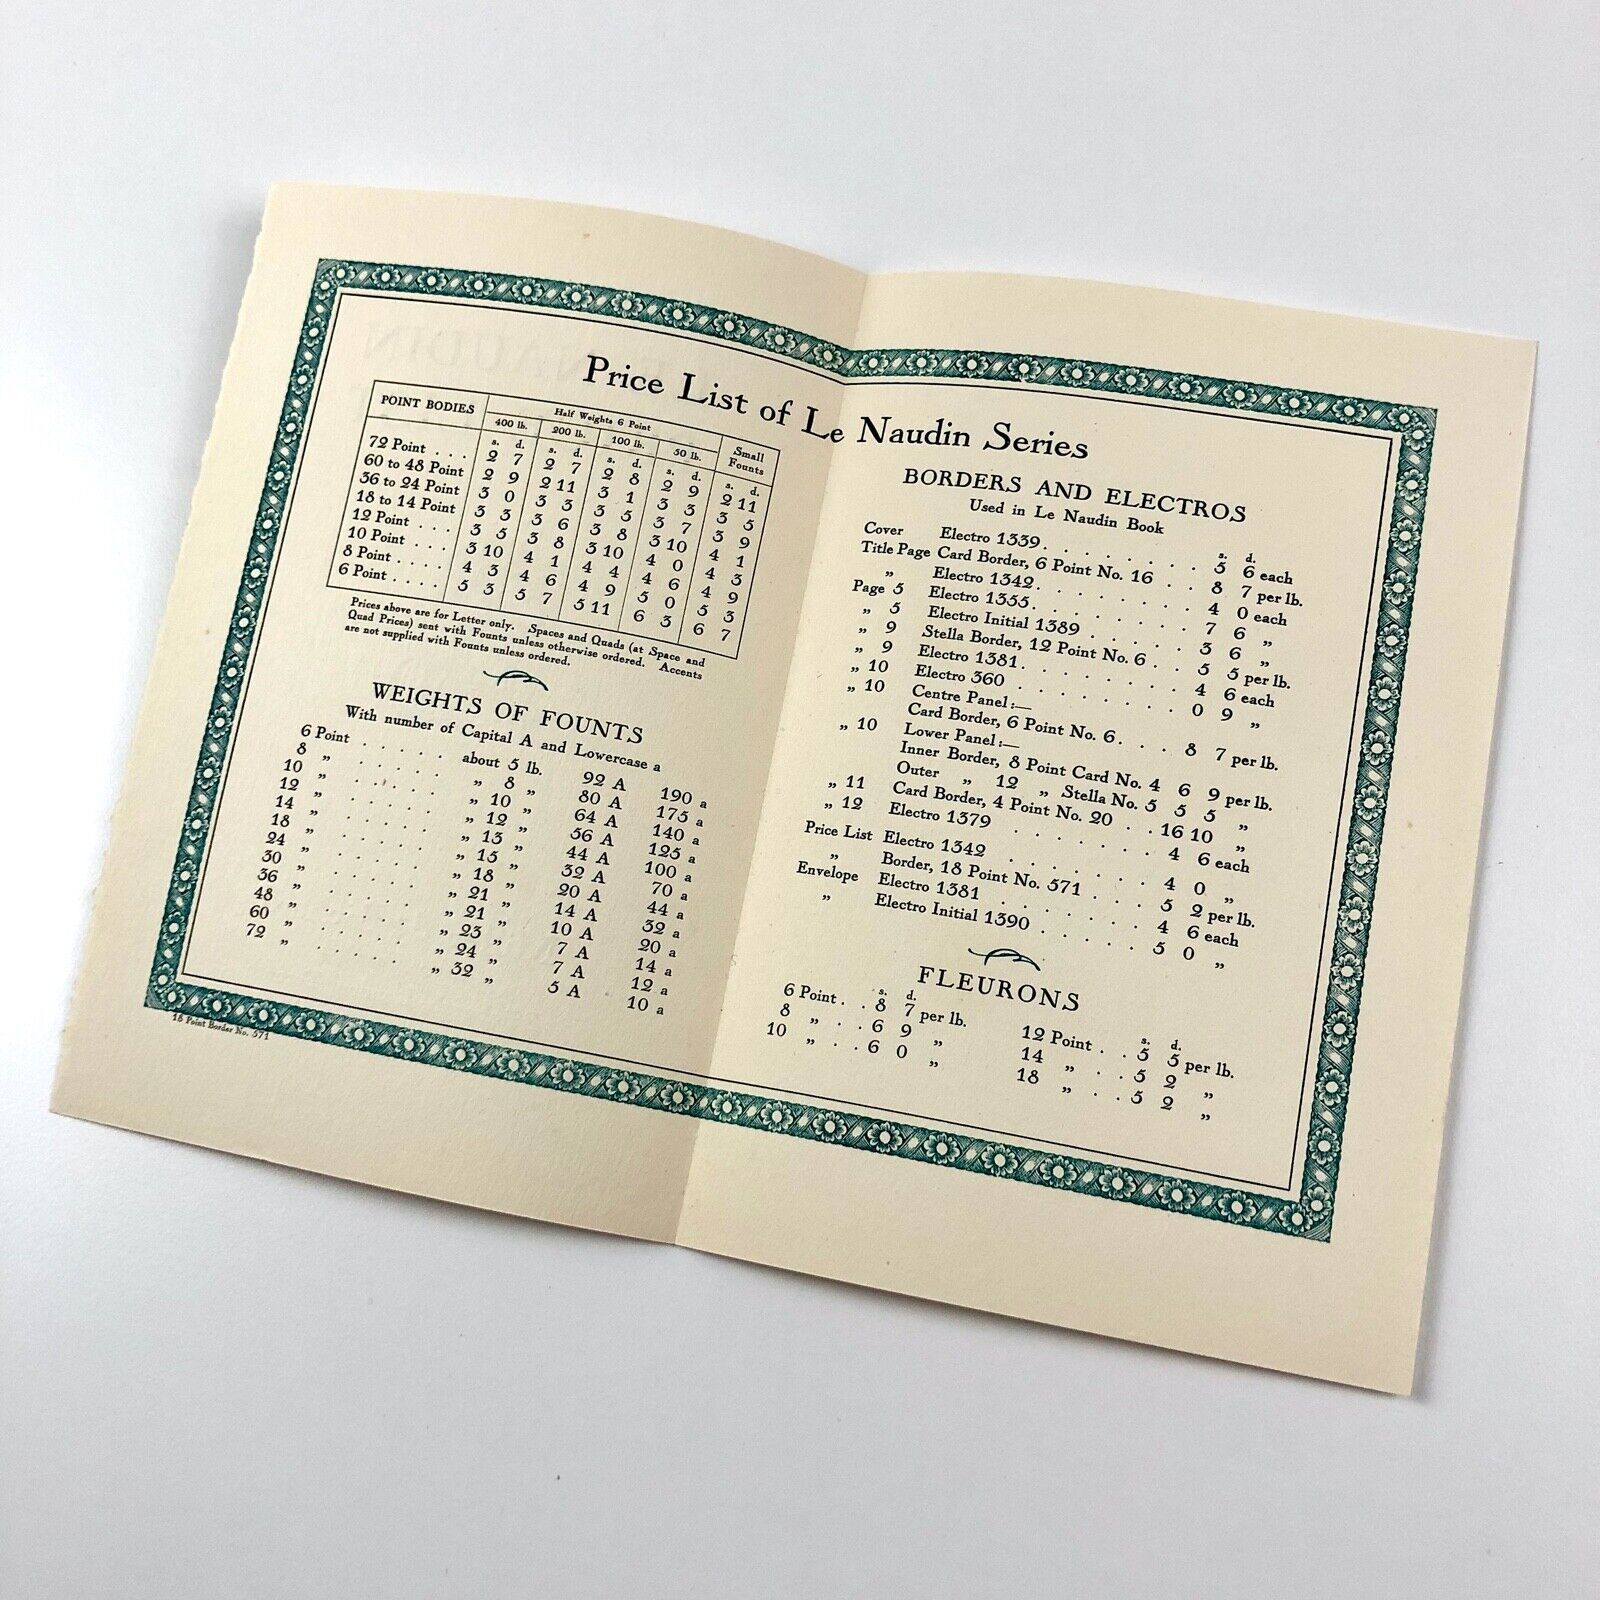 Price List of Le Naudin Series
POINT BODIES Half Weights 6 Point Small Founts
400 lb. 200 lb. 100 lb. 50 lb.
s. d. s. d. s. d. s. d. s. d.
72 Point . . . 2 7 2 7 2 8 2 9 2 11
60 to 48 Point 2 9 2 11 3 1 3 3 3 5
36 to 24 Point 3 0 3 3 3 5 3 7 3 9
18 to 14 Point 3 3 3 6 3 8 3 10 4 1
12 Point . . . 3 5 3 8 3 10 4 0 4 3
10 Point . . . 3 10 4 1 4 4 4 6 4 9
8 Point . . . . 4 3 4 6 4 9 5 0 5 3
6 Point . . . . 5 3 5 7 5 11 6 3 6 7
Prices above are for Letter only. Spaces and Quads (at Space and
Quad Prices) sent with Founts unless otherwise ordered. Accents
are not supplied with Founts unless ordered.
WEIGHTS OF FOUNTS
With number of Capital A and Lowercase a
6 Point . . . . . about 5 lb. 92 A 190 a
8 „ . . . . . „ 8 „ 80 A 175 a
10 „ . . . . . „ 10 „ 64 A 140 a
12 „ . . . . . „ 12 „ 56 A 125 a
14 „ . . . . . „ 13 „ 44 A 100 a
18 „ . . . . . „ 15 „ 32 A 70 a
24 „ . . . . . „ 18 „ 20 A 44 a
30 „ . . . . . „ 21 „ 14 A 32 a
36 „ . . . . . „ 21 „ 10 A 20 a
48 „ . . . . . „ 23 „ 7 A 14 a
60 „ . . . . . „ 24 „ 7 A 12 a
72 „ . . . . . „ 32 „ 5 A 10 a
18 Point Border No. 571
BORDERS AND ELECTROS
Used in Le Naudin Book
s. d.
Cover Electro 1339 . . . . . . . . 5 6 each
Title Page Card Border, 6 Point No. 16 . . . 8 7 per lb.
„ Electro 1342 . . . . . . . . 4 0 each
Page 5 Electro 1355 . . . . . . . . 7 6 „
„ 5 Electro Initial 1389 . . . . . . 3 6 „
„ 9 Stella Border, 12 Point No. 6 . . . 5 5 per lb.
„ 9 Electro 1381 . . . . . . . . 4 6 each
„ 10 Electro 360 . . . . . . . . 0 9 „
„ 10 Centre Panel:—
Card Border, 6 Point No. 6 . . . 8 7 per lb.
„ 10 Lower Panel:—
Inner Border, 8 Point Card No. 4 6 9 per lb.
Outer „ 12 „ Stella No. 5 5 5 „
„ 11 Card Border, 4 Point No. 20 . . 16 10 „
„ 12 Electro 1379 . . . . . . . 4 6 each
Price List Electro 1342 . . . . . . . 4 0 „
„ Border, 18 Point No. 571 . . . 5 2 per lb.
Envelope Electro 1381 . . . . . . . 4 6 each
„ Electro Initial 1390 . . . . . 5 0 „
FLEURONS
s. d. s. d.
6 Point . . 8 7 per lb. 12 Point . . 5 5 per lb.
8 „ . . 6 9 „ 14 „ . . 5 2 „
10 „ . . 6 0 „ 18 „ . . 5 2 „